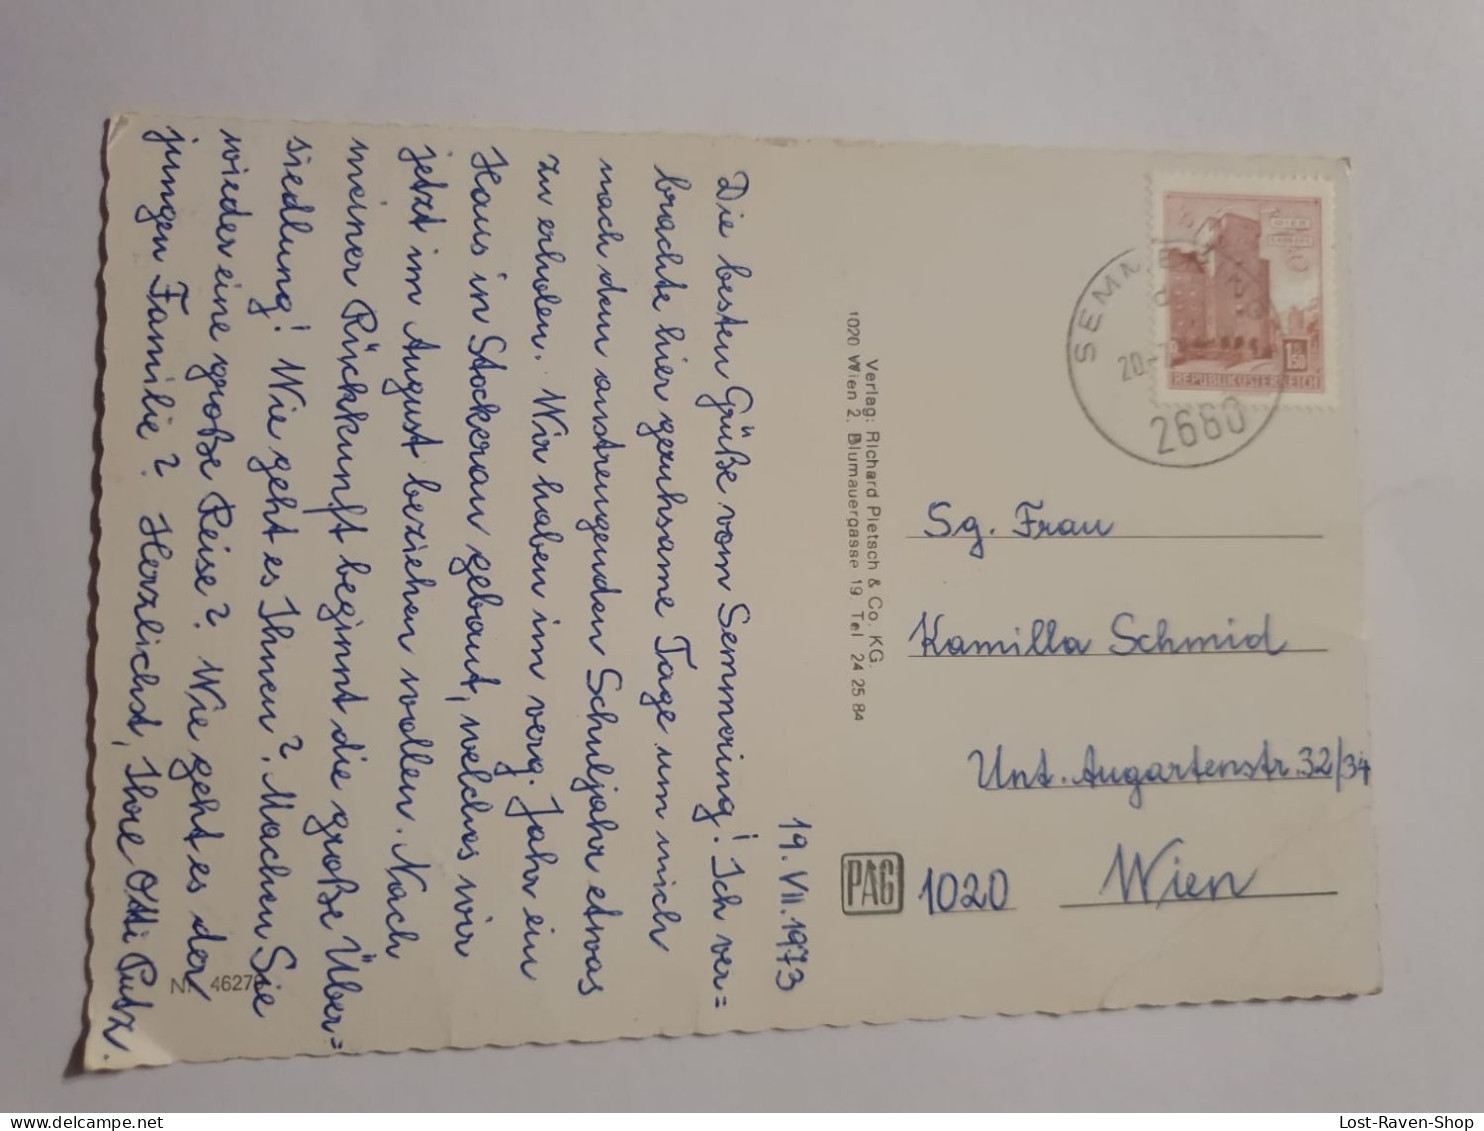 19. VII. 1973
Die besten Grüße vom Semmering! Ich ver=
brachte hier geruhsame Tage um mich
nach dem anstrengenden Schuljahr etwas
zu erholen. Wir haben im verg. Jahr ein
Haus in Stockerau gebaut, welches wir
jetzt im August beziehen wollen. Nach
meiner Rückkunft beginnt die große Über=
siedlung! Wie geht es Ihnen? Machen Sie
wieder eine große Reise? Wie geht es der
jungen Familie? Herzlichst, Ihre Otti Putz.
Nr. 4627
Verlag: Richard Pietsch & Co. KG.
1020 Wien 2, Blumauergasse 19, Tel 24 25 84
PAG
SEMMERING
20.
2680
WIEN
ERDBERG
1.50
REPUBLIK ÖSTERREICH
Sg. Frau
Kamilla Schmid
Unt. Augartenstr. 32/34
1020 Wien
Lost-Raven-Shop